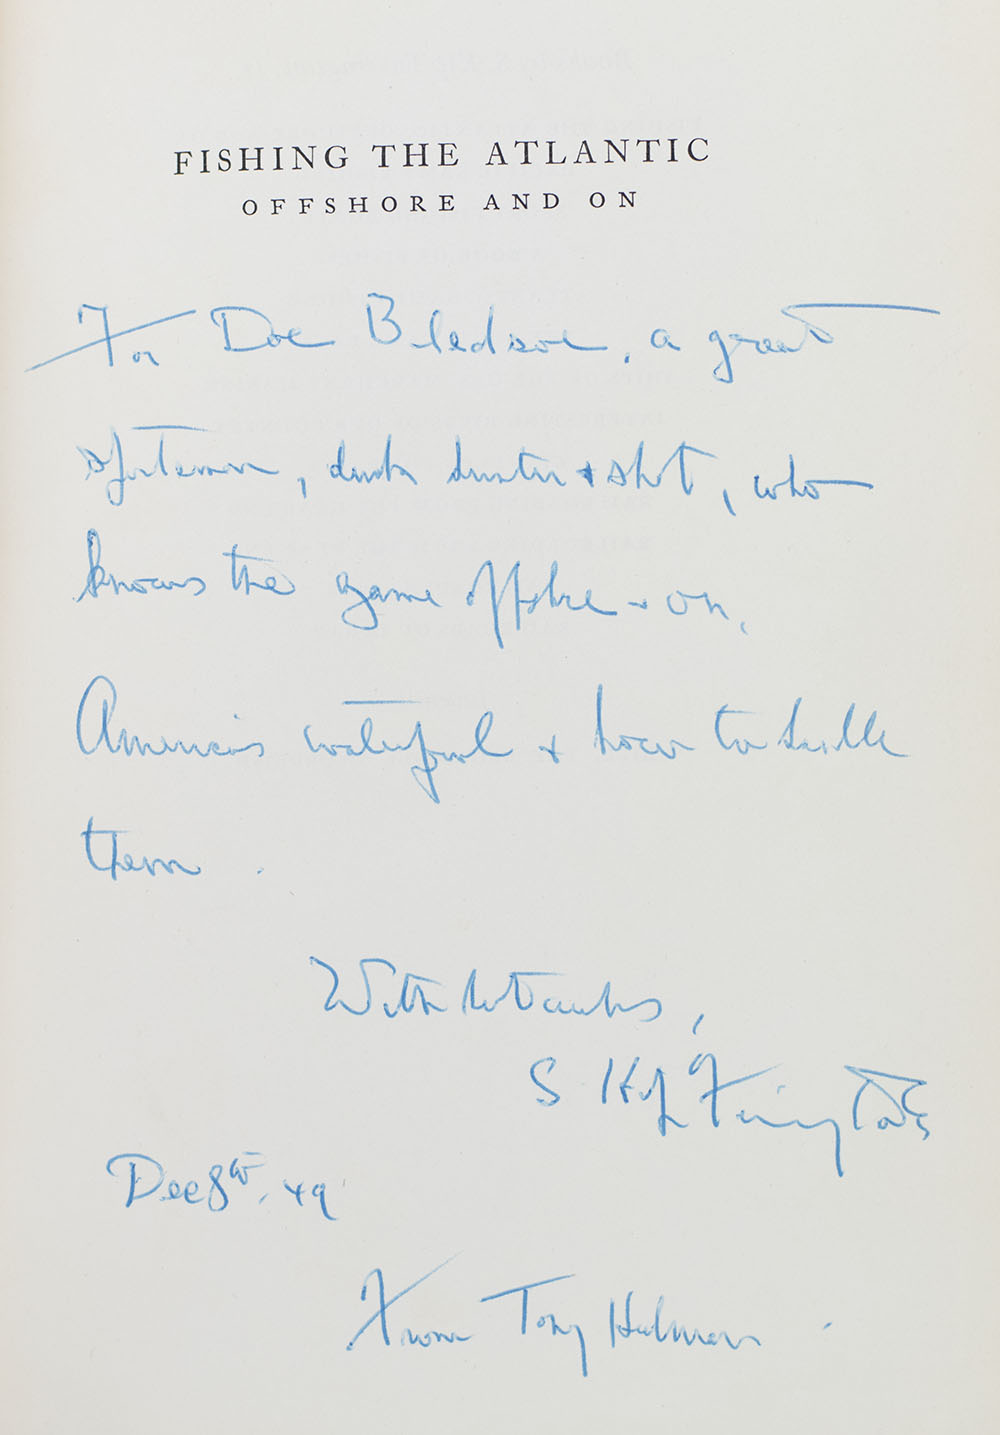 FISHING THE ATLANTIC
OFFSHORE AND ON
For Doc Bledsoe, a great
sportsman, duck hunter + shot, who
knows the game offshore + on,
America's waterfowl + how to handle
them.
With thanks,
S Kip Farrington
Dec 8th, 49
From Tony Hulman